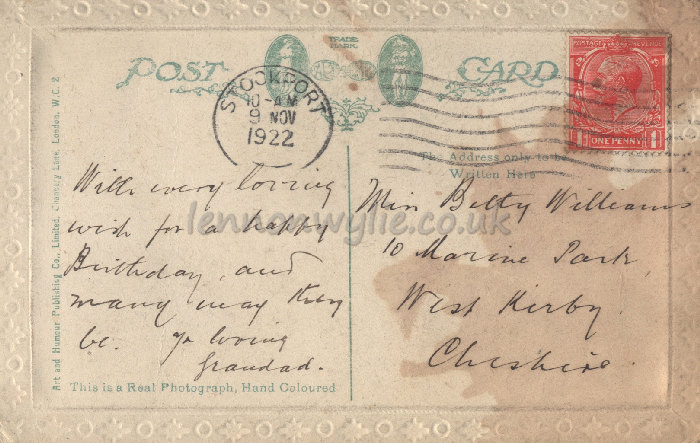 POST CARD
TRADE MARK
STOCKPORT
10-AM
9 NOV
1922
POSTAGE REVENUE
ONE PENNY
The Address only to be
Written Here
With every loving
wish for a happy
Birthday, and
many may they
be. Yr loving
Grandad.
Miss Betty Williams
10 Marine Park
West Kirby.
Cheshire.
lennonwylie.co.uk
This is a Real Photograph, Hand Coloured
Art and Humour Publishing Co., Limited, Chancery Lane, London, W.C. 2